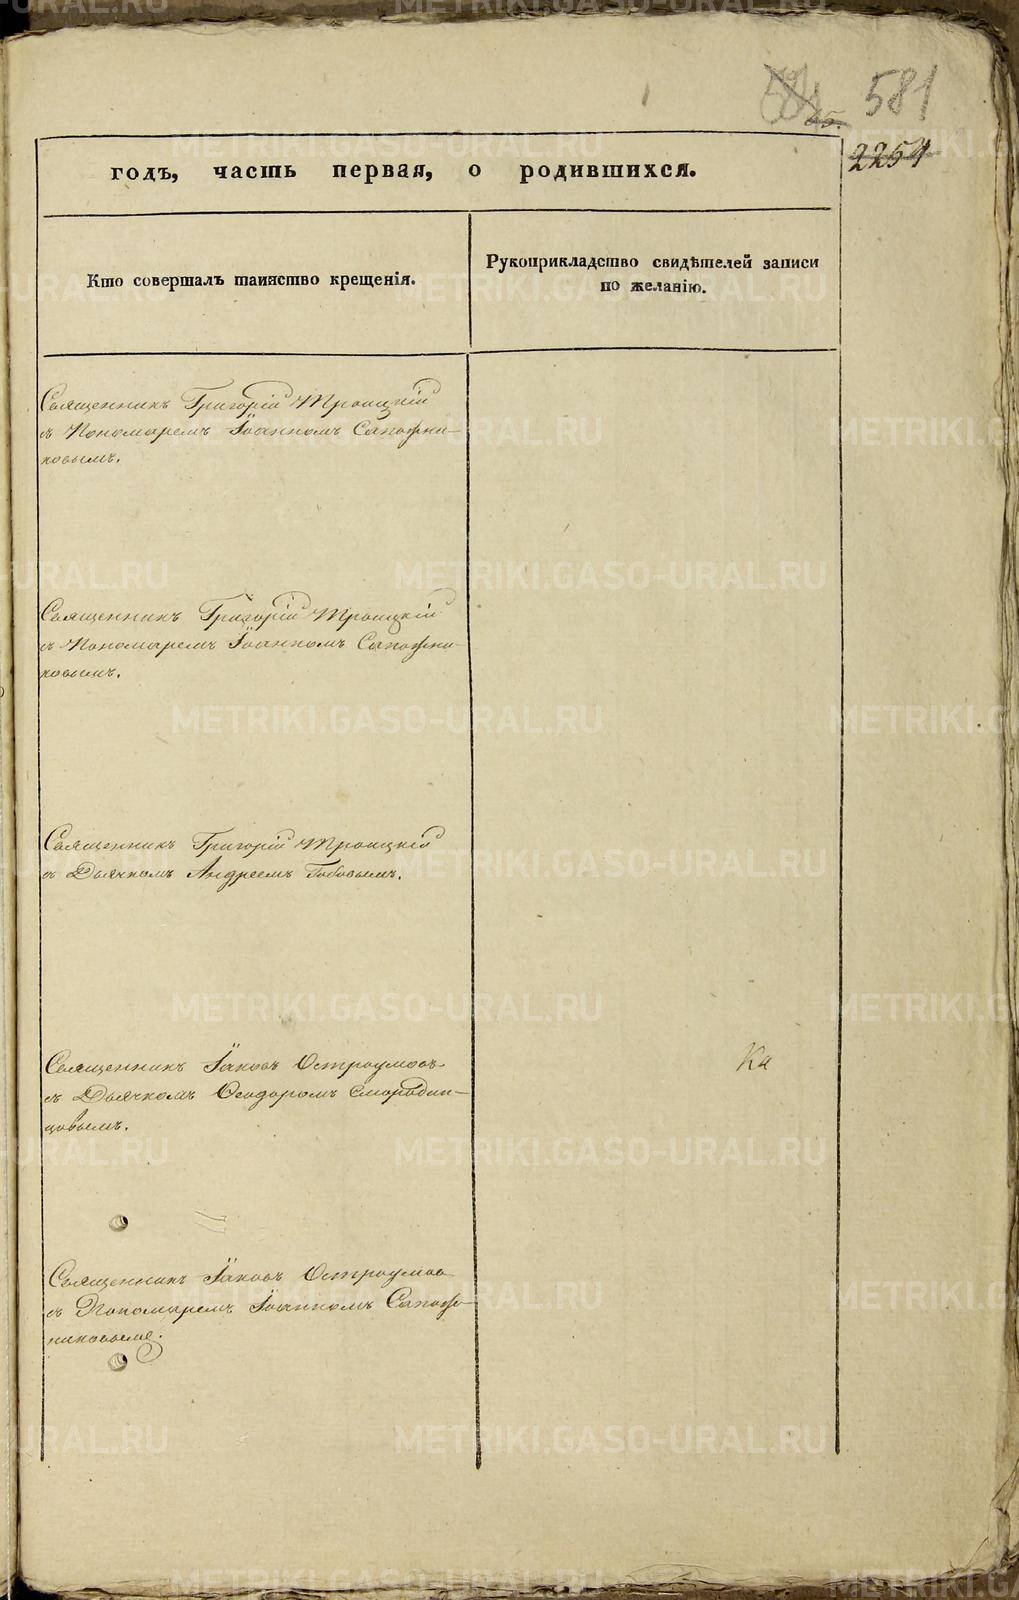 581
65.
2254
годъ, часть первая, о родившихся.
Кто совершалъ таинство крещенія.
Рукоприкладство свидѣтелей записи
по желанію.
Священникъ Григорій Троицкій
съ Пономаремъ Іоанномъ Сапожни-
ковымъ.
Священникъ Григорій Троицкій
съ Пономаремъ Іоанномъ Сапожни-
ковымъ.
Священникъ Григорій Троицкій
съ Дьячкомъ Андреемъ Бобовымъ.
Священникъ Іаковъ Остроумовъ
съ Дьячкомъ Ѳеодоромъ Смородин-
цовымъ.
Ка
Священникъ Іаковъ Остроумовъ
съ Пономаремъ Іоанномъ Сапож-
никовымъ.
METRIKI.GASO-URAL.RU